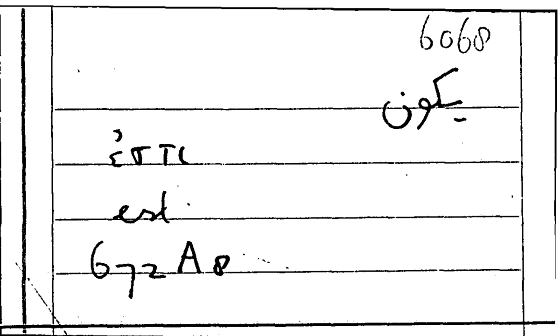 6068
يكون
ἐστι
est
672 A 8